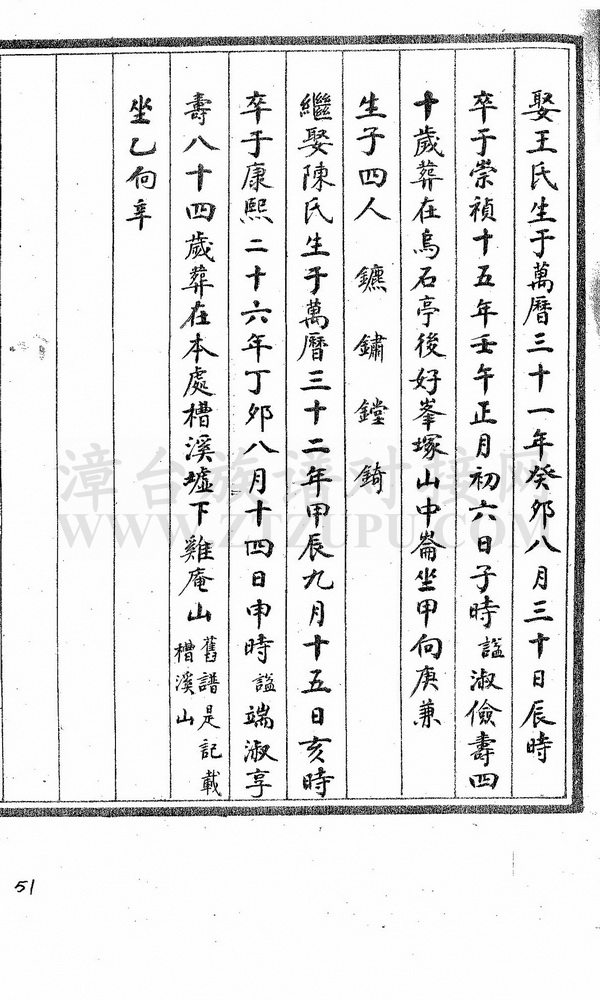 娶王氏生于萬曆三十一年癸卯八月三十日辰時
卒于崇禎十五年壬午正月初六日子時謚淑儉壽四
十歲葬在烏石亭後好峯塚山中崙坐甲向庚兼
生子四人 鑣 鏽 鏜 錡
繼娶陳氏生于萬曆三十二年甲辰九月十五日亥時
卒于康熙二十六年丁卯八月十四日申時謚端淑享
壽八十四歲葬在本處槽溪墟下雞庵山
舊譜是記載
槽溪山
坐乙向辛
漳台族谱对接网
WWW.ZTZUPU.COM
51